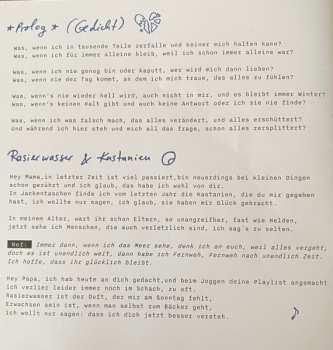 *Prolog* (Gedicht)
Was, wenn ich in tausende Teile zerfalle und keiner mich halten kann?
Was, wenn ich für immer alleine bleib, weil ich schon immer alleine war?
Was, wenn ich nie genug bin oder kaputt, wer wird mich dann lieben?
Was, wenn nie der Tag kommt, an dem ich mich traue, das alles zu fühlen?
Was, wenn's nie wieder hell wird, auch nicht in mir, und es bleibt immer Winter?
Was, wenn's keinen Halt gibt und auch keine Antwort oder ich sie nie finde?
Was, wenn ich was falsch mach, das alles verändert, und alles erschüttert?
Und während ich hier steh und mich all das frage, schon alles zersplittert?
Rasierwasser & Kastanien
Hey Mama, in letzter Zeit ist viel passiert, bin neuerdings bei kleinen Dingen
schon gerührt und ich glaub, das habe ich wohl von dir.
In Jackentaschen finde ich vom letzten Jahr die Kastanien, die du mir gegeben
hast, ich wollte nur sagen, ich glaub, sie haben mir Glück gebracht.
In meinem Alter, wart ihr schon Eltern, so unangreifbar, fast wie Helden,
jetzt sehe ich Menschen, die auch verletzlich sind, ich sag's zu selten.
Ref: Immer dann, wenn ich das Meer sehe, denk ich an euch, weil alles vergeht,
doch es ist unendlich weit, dann habe ich Fernweh, Fernweh nach unendlich Zeit.
Ich hoffe, dass ihr glücklich bleibt.
Hey Papa, ich hab heute an dich gedacht, und beim Joggen deine Playlist angemacht
ich verlier leider immer noch im Schach, zu oft.
Rasierwasser ist der Duft, der mir am Sonntag fehlt,
Erwachsen sein ist, wenn man selbst zum Bäcker geht,
ich wollt nur sagen: dass ich dich jetzt besser versteh.